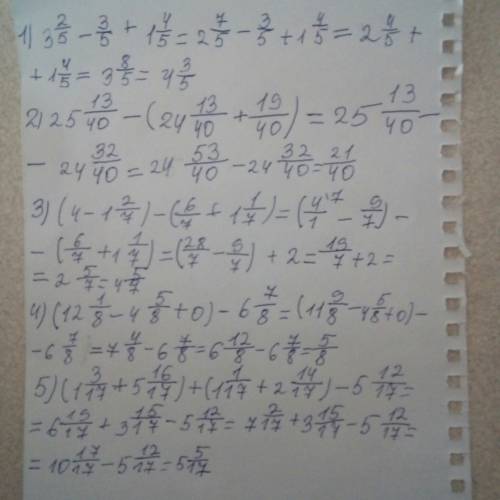 1) 3 2/5 - 3/5 + 1 4/5 = 2 7/5 - 3/5 + 1 4/5 = 2 4/5 +
+ 1 4/5 = 3 8/5 = 4 3/5
2) 25 13/40 - (24 13/40 + 19/40) = 25 13/40 -
- 24 32/40 = 24 53/40 - 24 32/40 = 21/40
3) (4 - 1 2/7) - (6/7 + 1 1/7) = (4^7/1 - 9/7) -
- (6/7 + 1 1/7) = (28/7 - 9/7) + 2 = 19/7 + 2 =
= 2 5/7 = 4 5/7
4) (12 1/8 - 4 5/8 + 0) - 6 7/8 = (11 9/8 - 4 5/8 + 0) -
- 6 7/8 = 7 4/8 - 6 7/8 = 6 12/8 - 6 7/8 = 5/8
5) (1 3/17 + 5 16/17) + (1 1/17 + 2 14/17) - 5 12/17 =
= 6 19/17 + 3 15/17 - 5 12/17 = 7 2/17 + 3 15/17 - 5 12/17 =
= 10 17/17 - 5 12/17 = 5 5/17